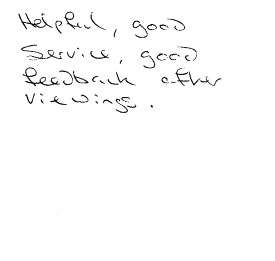 Helpful, good
Service, good
feedback after
viewings.